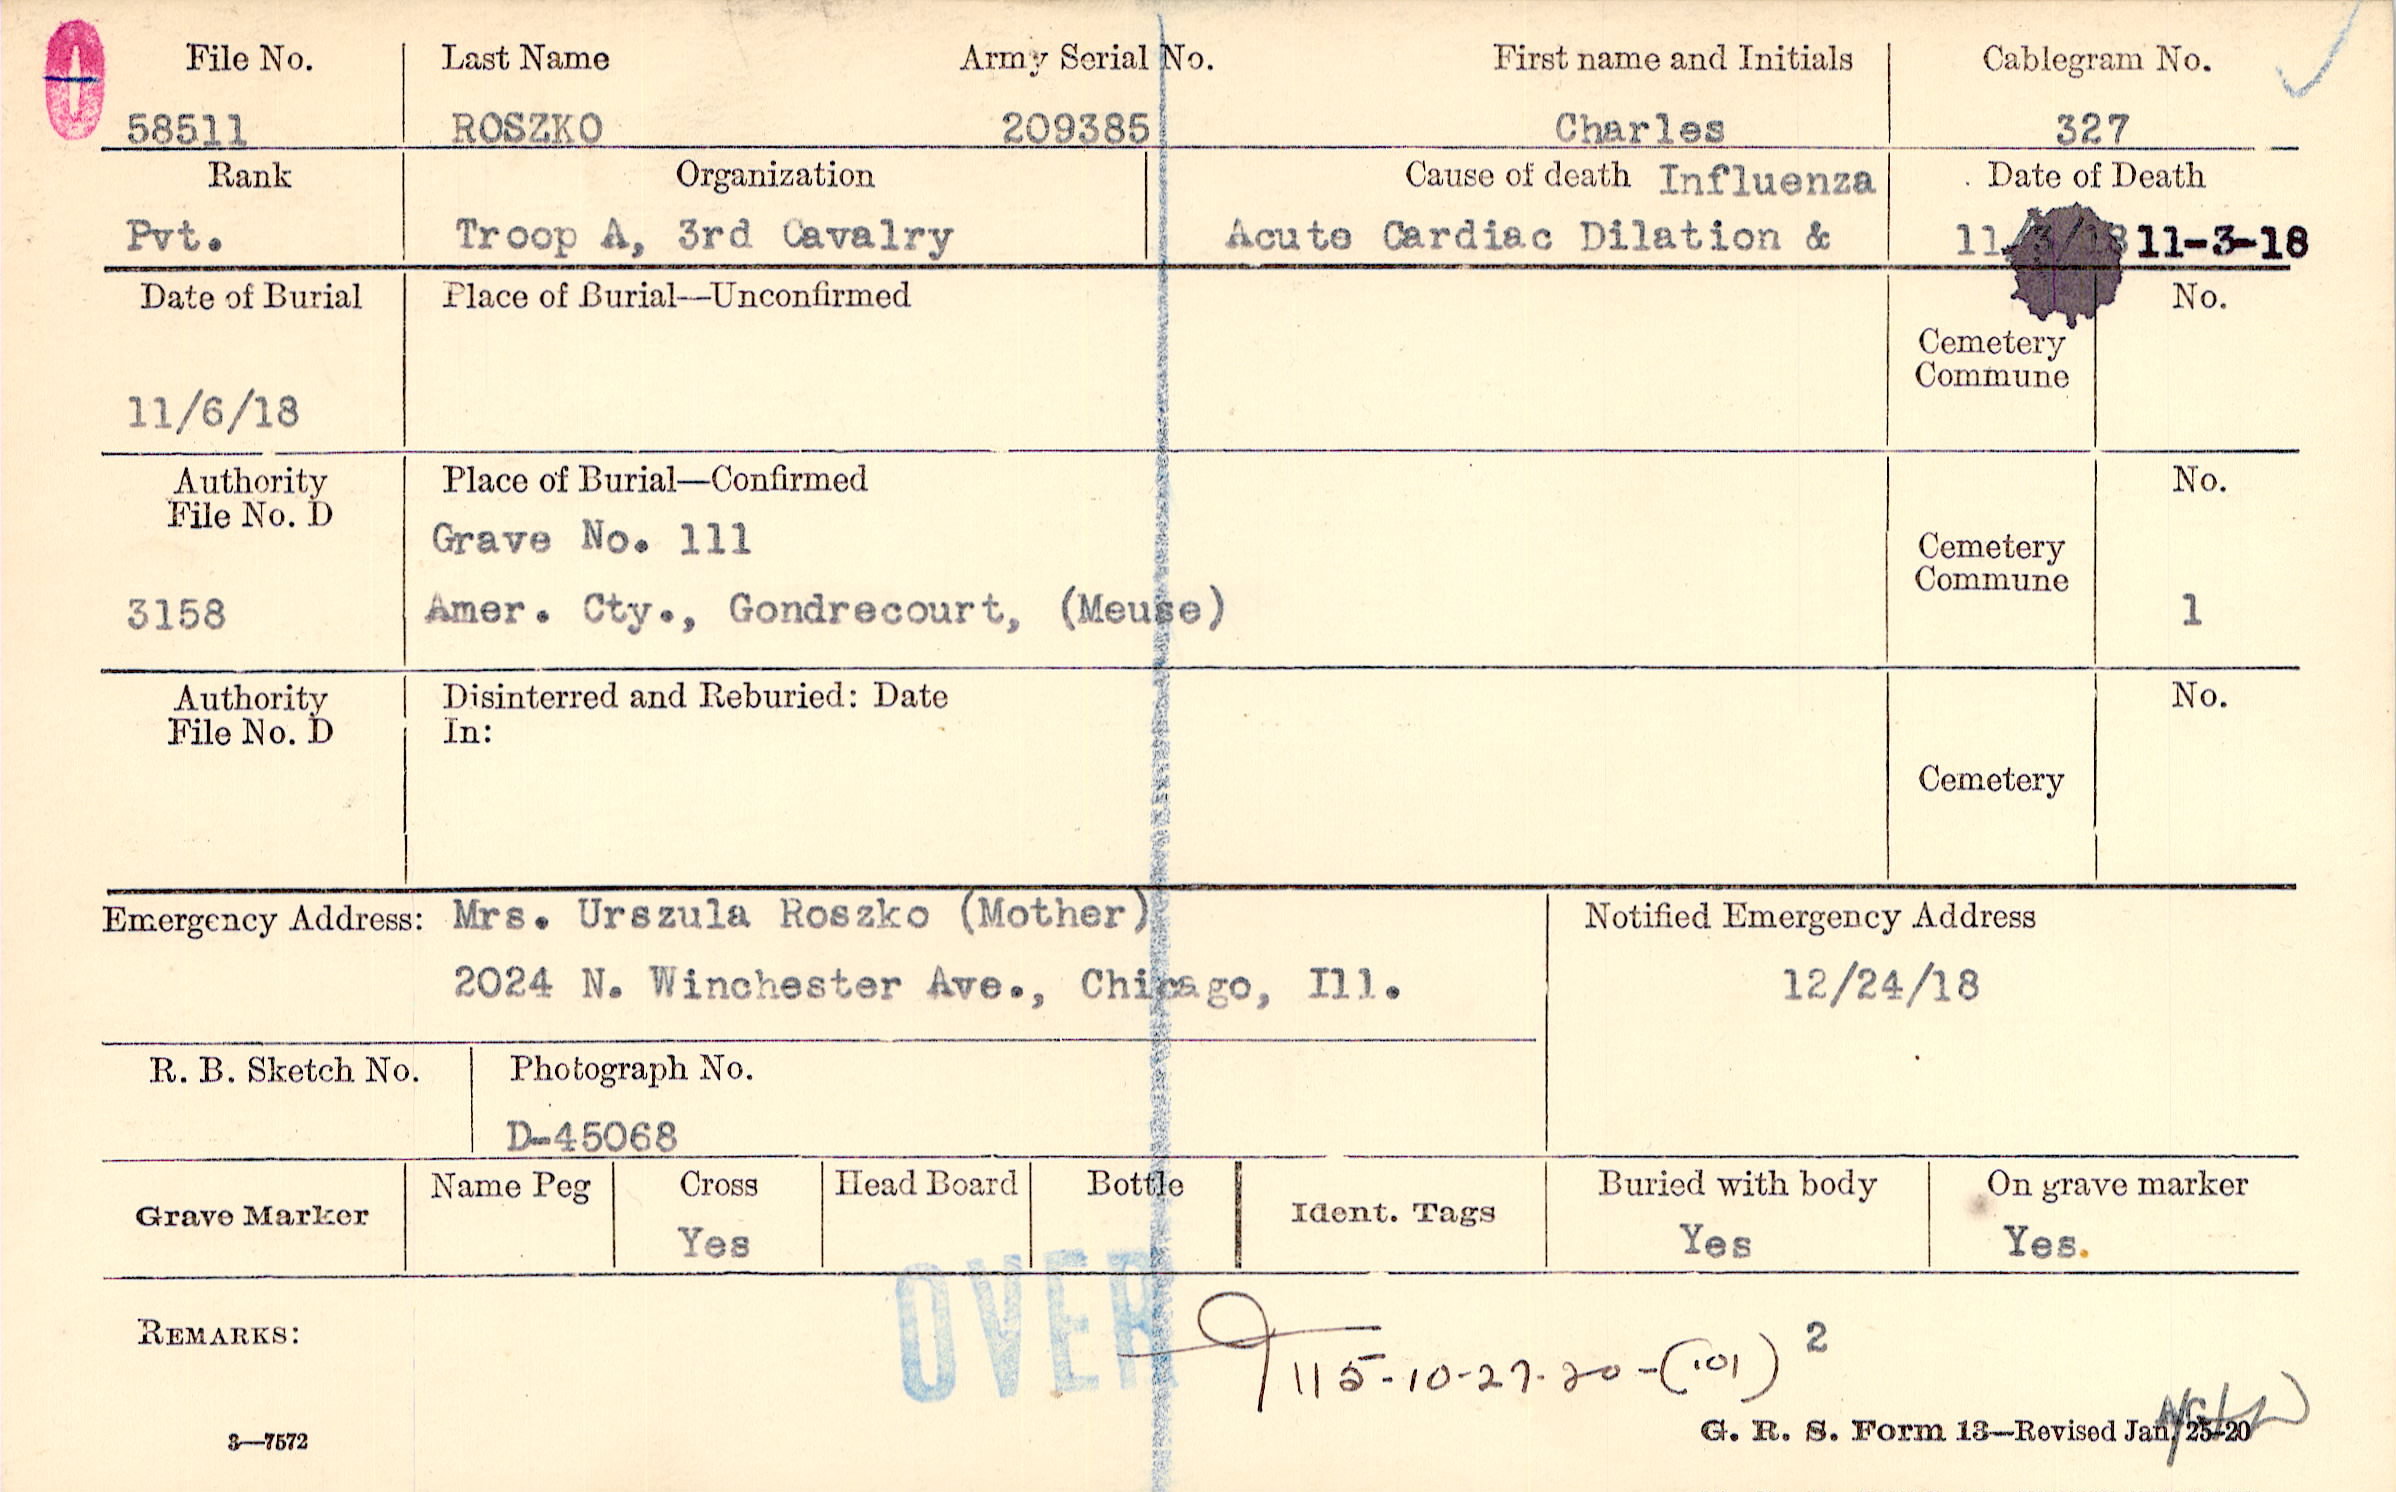 File No. Last Name Army Serial No. First name and Initials Cablegram No.
58511 ROSZKO 209385 Charles 327
Rank Organization Cause of death Influenza Date of Death
Pvt. Troop A, 3rd Cavalry Acute Cardiac Dilation & 11/3/18 11-3-18
Date of Burial Place of Burial—Unconfirmed No.
Cemetery
Commune
11/6/18
Authority Place of Burial—Confirmed No.
File No. D
Grave No. 111
Cemetery
Commune
3158 Amer. Cty., Gondrecourt, (Meuse) 1
Authority Disinterred and Reburied: Date No.
File No. D In:
Cemetery
Emergency Address: Mrs. Urszula Roszko (Mother) Notified Emergency Address
2024 N. Winchester Ave., Chicago, Ill. 12/24/18
R. B. Sketch No. Photograph No.
D-45068
Grave Marker Name Peg Cross Head Board Bottle Ident. Tags Buried with body On grave marker
Yes Yes Yes.
OVER
REMARKS: 115-10-27-20-(101) 2
3—7572 G. R. S. Form 13—Revised Jan. 25-20